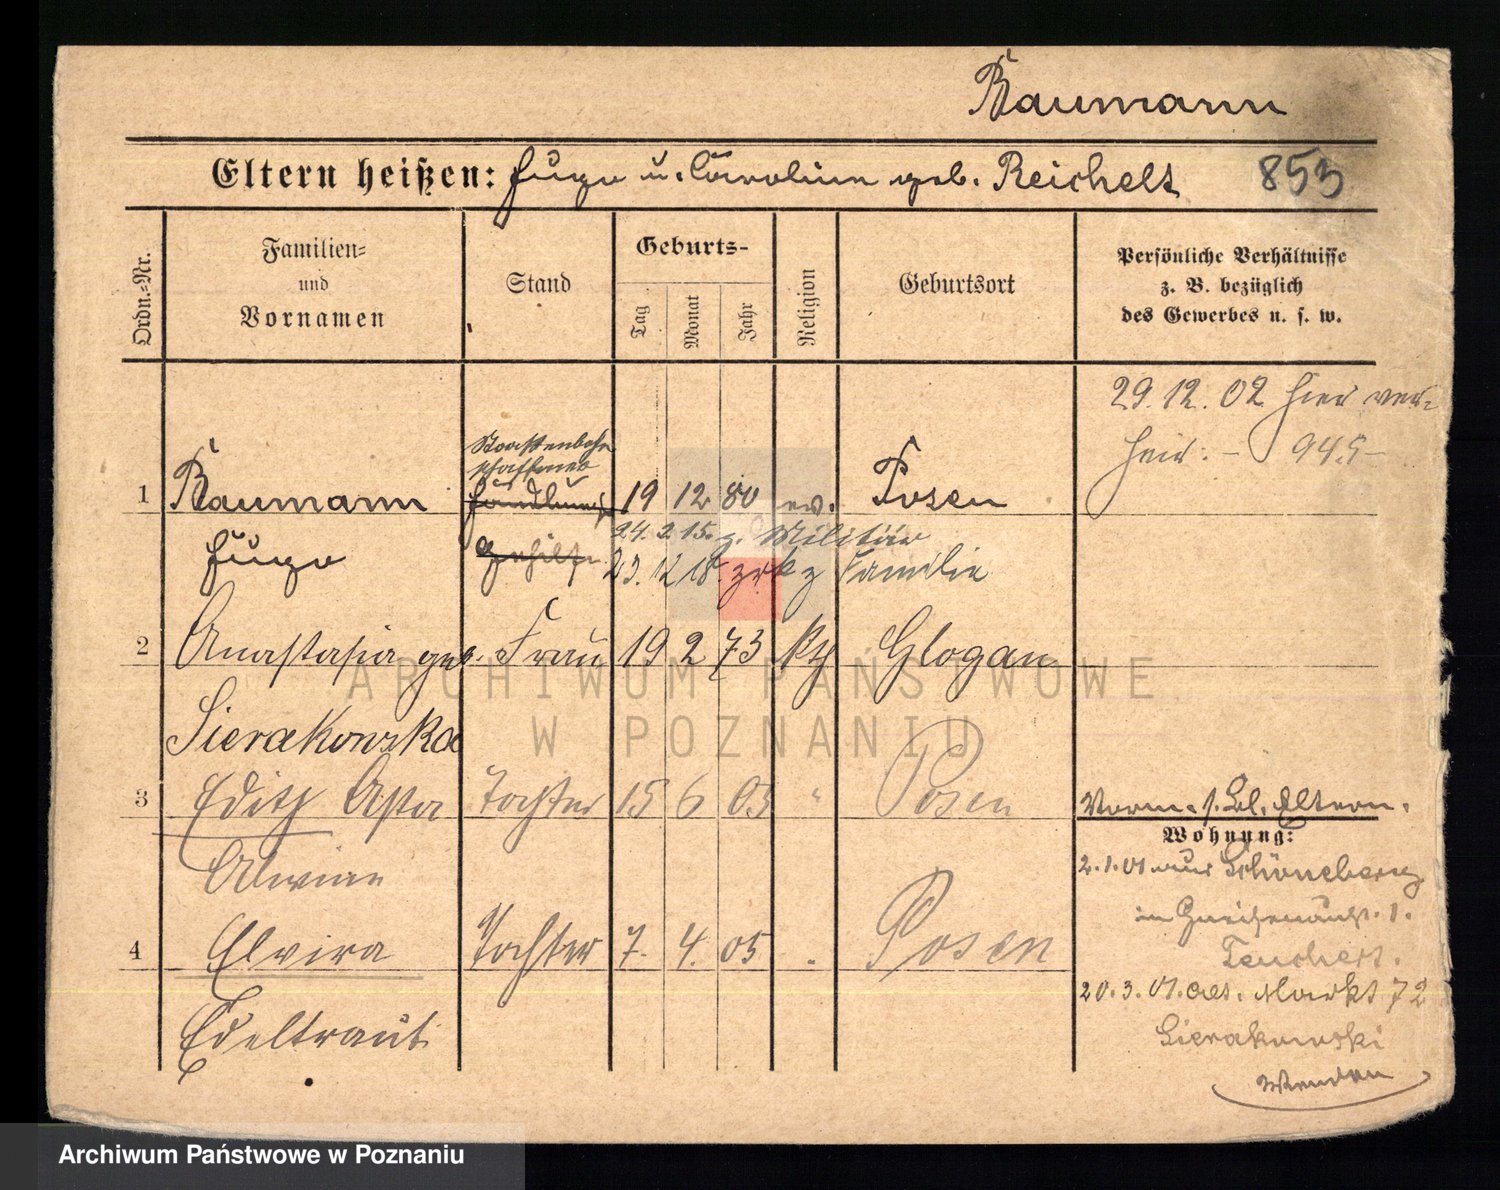 Baumann
Eltern heißen: Hugo u. Carolina geb. Reichelt 853
Ordn.-Nr.
Familien-
und
Vornamen
Stand
Geburts-
Tag
Monat
Jahr
Religion
Geburtsort
Persönliche Verhältnisse
z. B. bezüglich
des Gewerbes u. s. w.
29. 12. 02 hier ver-
heir. - 945-
Staatsenbahn
schaffner
1 Baumann Handlungs 19 12 80 ev. Posen
24. 2 15. z. Militär
Hugo Gehilfe 23. 12 18. zrk z Familie
2 Anastasia geb. Frau 19 2 73 kth Glogau
Sierakowska
3 Edith Asta Tochter 15 6 03 " Posen
Alwine
4 Elvira Tochter 7. 4. 05 . Posen
Edeltraut
Vorm. s. Bl. Eltern.
Wohnung:
2. 1. 01 aus Schöneberg
in Gneisenaustr. 1.
Teuchert.
20. 3. 01. Alt. Markt 72
Sierakowski
Wenden
ARCHIWUM PAŃSTWOWE
W POZNANIU
Archiwum Państwowe w Poznaniu